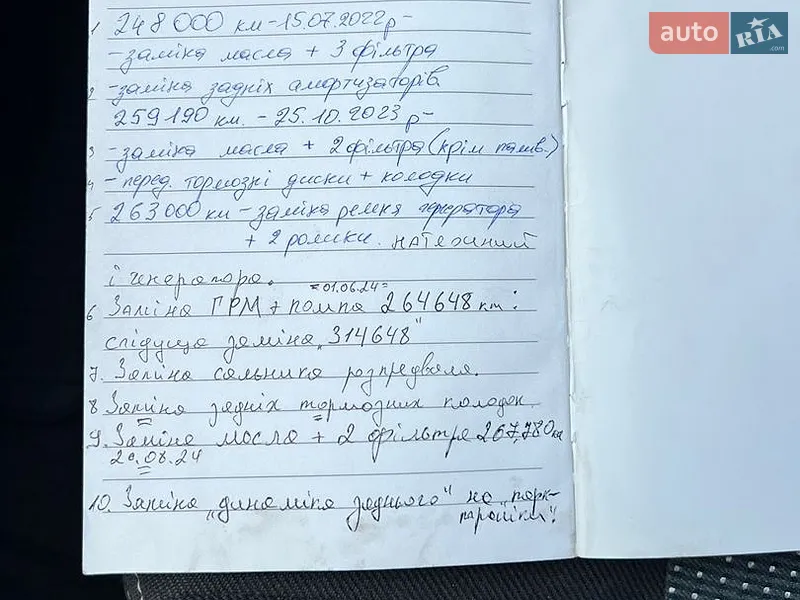 auto RIA .com
1 248 000 км - 15.07.2022р -
- заміна масла + 3 фільтра
2 - заміна задніх амортизаторів
259190 км. - 25.10.2023 р -
3 - заміна масла + 2 фільтра (крім палив.)
4 - перед. тормозні диски + колодки
5 263 000 км - заміна ремня генератора
+ 2 ролики. натяжний
і генератора.
= 01.06.24 =
6 Заміна ГРМ + помпа 264648 км:
слідующа заміна „314648"
7. Заміна сальника розпредвала.
8 Заміна задніх тормозних колодок
9. Заміна масла + 2 фільтра 267,780 км
20.08.24
10. Заміна „динаміка заднього" на „парк-